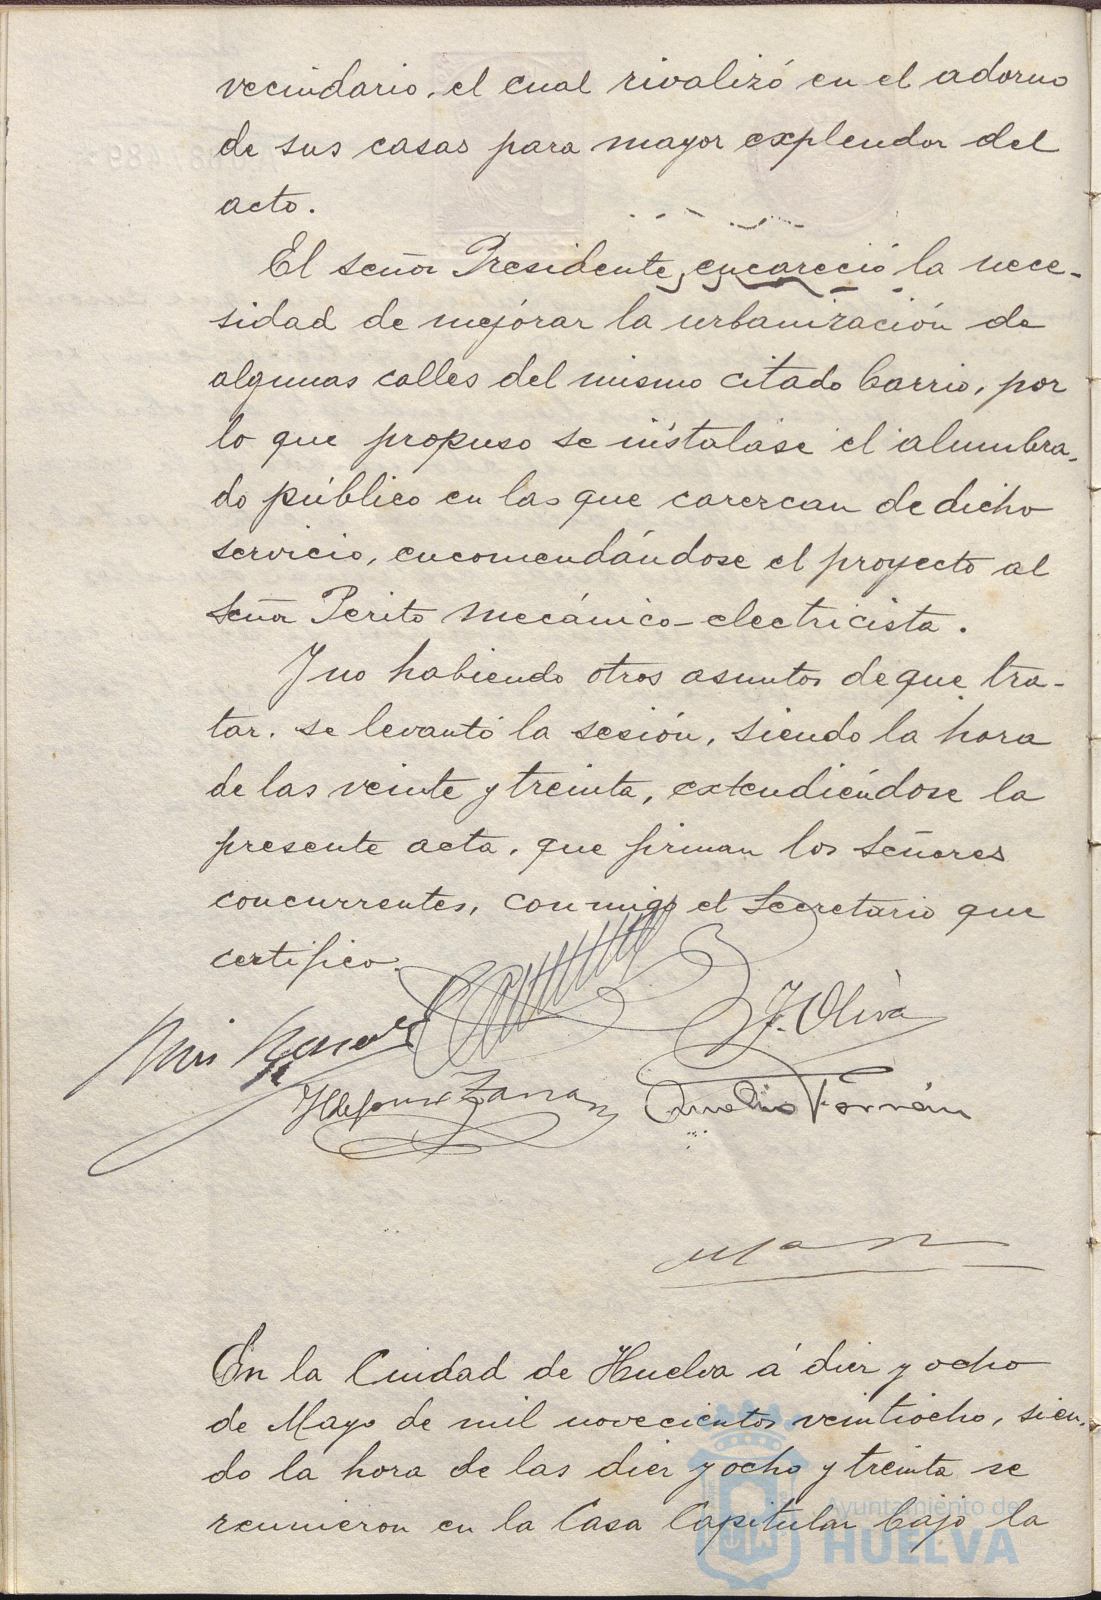 vecindario, el cual rivalizó en el adorno
de sus casas para mayor explendor del
acto.
El señor Presidente, encareció la nece-
sidad de mejorar la urbanización de
algunas calles del mismo citado barrio, por
lo que propuso se instalase el alumbra-
do público en las que carezcan de dicho
servicio, encomendándose el proyecto al
señor Perito mecánico-electricista.
Y no habiendo otros asuntos de que tra-
tar, se levantó la sesión, siendo la hora
de las veinte y treinta, extendiéndose la
presente acta, que firman los señores
concurrentes, conmigo el Secretario que
certifico.
J. Oliva
Terrón
En la Ciudad de Huelva á diez y ocho
de Mayo de mil novecientos veintiocho, sien-
do la hora de las diez y ocho y treinta se
reunieron en la Casa Capitular bajo la
Ayuntamiento de
HUELVA